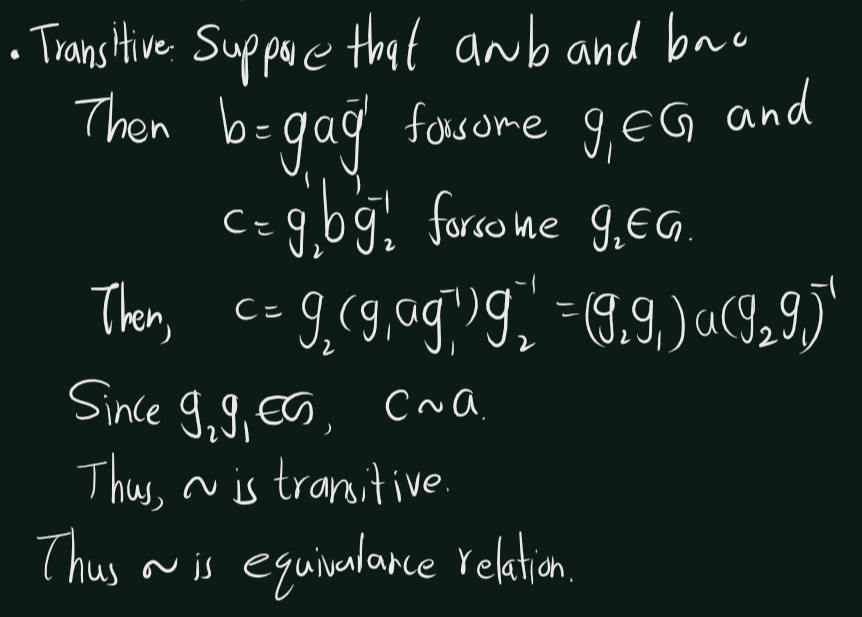 • Transitive: Suppose that a~b and b~c
Then b = g₁ag₁⁻¹ for some g₁∈G and
c = g₂bg₂⁻¹ for some g₂∈G.
Then, c = g₂(g₁ag₁⁻¹)g₂⁻¹ = (g₂g₁)a(g₂g₁)⁻¹
Since g₂g₁∈G, c~a.
Thus, ~ is transitive.
Thus ~ is equivalance relation.